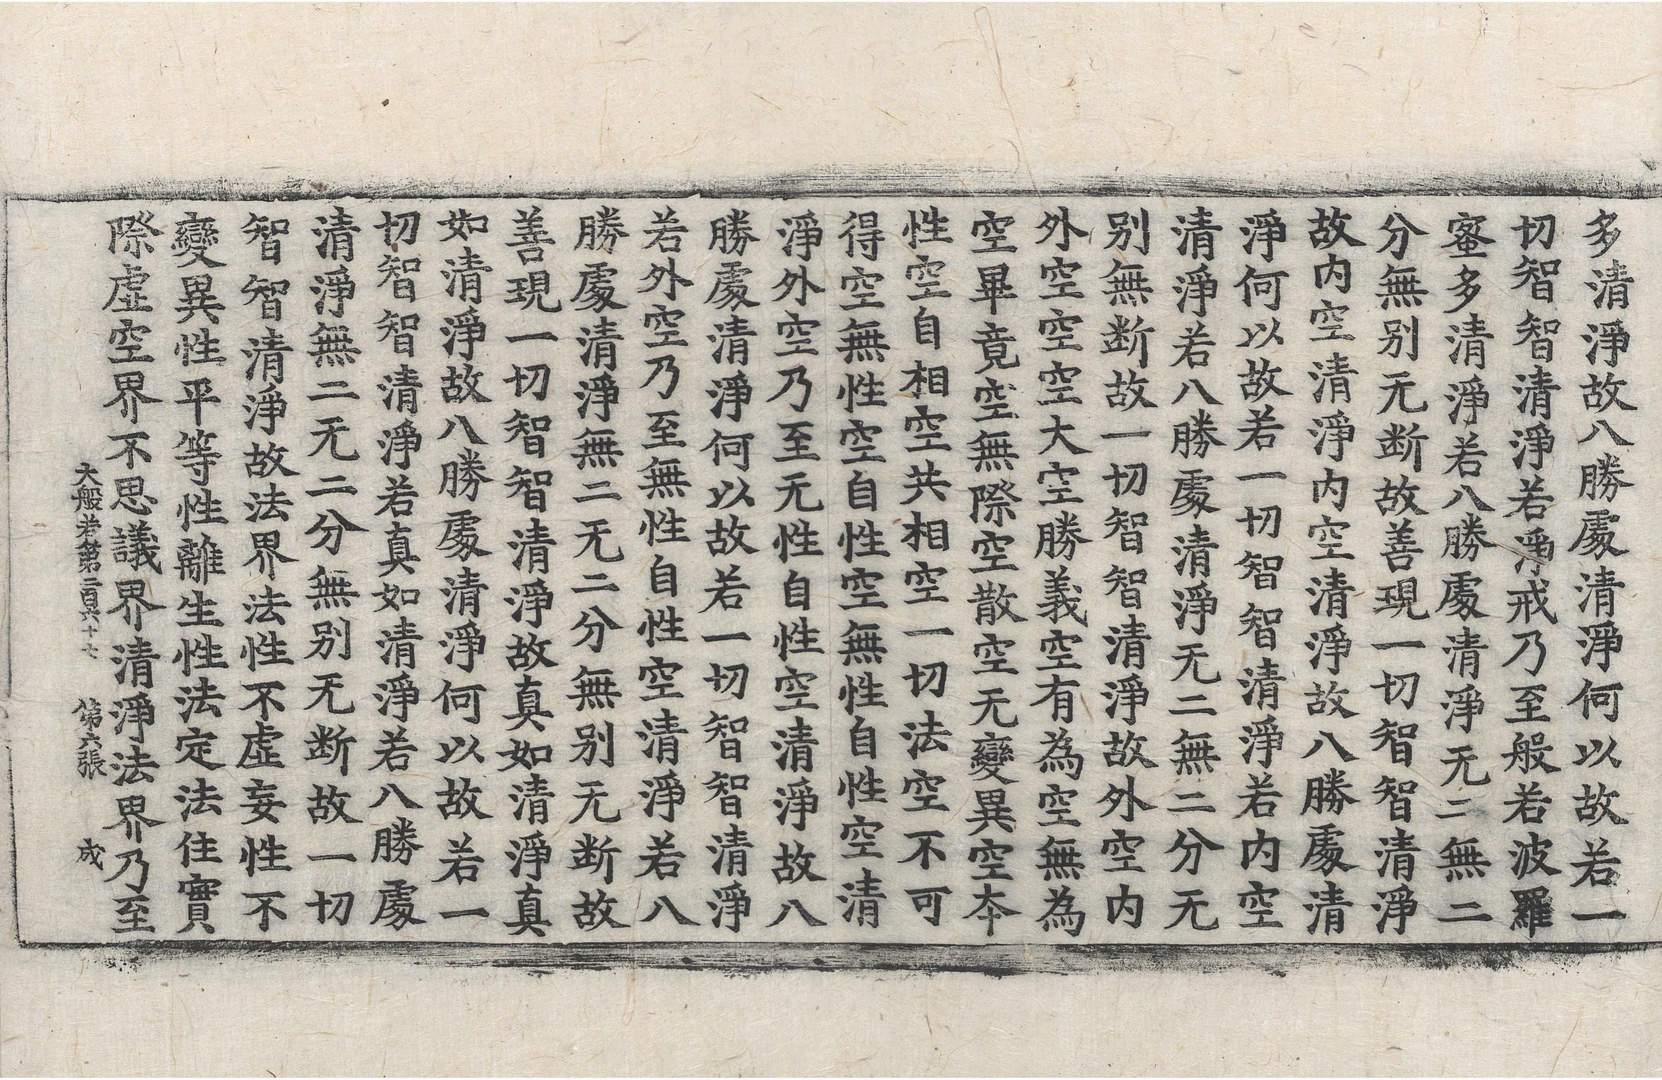 多清淨故八勝處清淨何以故若一
切智智清淨若淨戒乃至般若波羅
蜜多清淨若八勝處清淨无二無二
分無别无断故善現一切智智清淨
故内空清淨内空清淨故八勝處清
淨何以故若一切智智清淨若内空
清淨若八勝處清淨无二無二分无
别無断故一切智智清淨故外空内
外空空空大空勝義空有為空無為
空畢竟空無際空散空无變異空夲
性空自相空共相空一切法空不可
得空無性空自性空無性自性空清
淨外空乃至无性自性空清淨故八
勝處清淨何以故若一切智智清淨
若外空乃至無性自性空清淨若八
勝處清淨無二无二分無别无断故
善現一切智智清淨故真如清淨真
如清淨故八勝處清淨何以故若一
切智智清淨若真如清淨若八勝處
清淨無二无二分無别无断故一切
智智清淨故法界法性不虛妄性不
變異性平等性離生性法定法住實
際虛空界不思議界清淨法界乃至
大般若第二百六十七 第六張 成